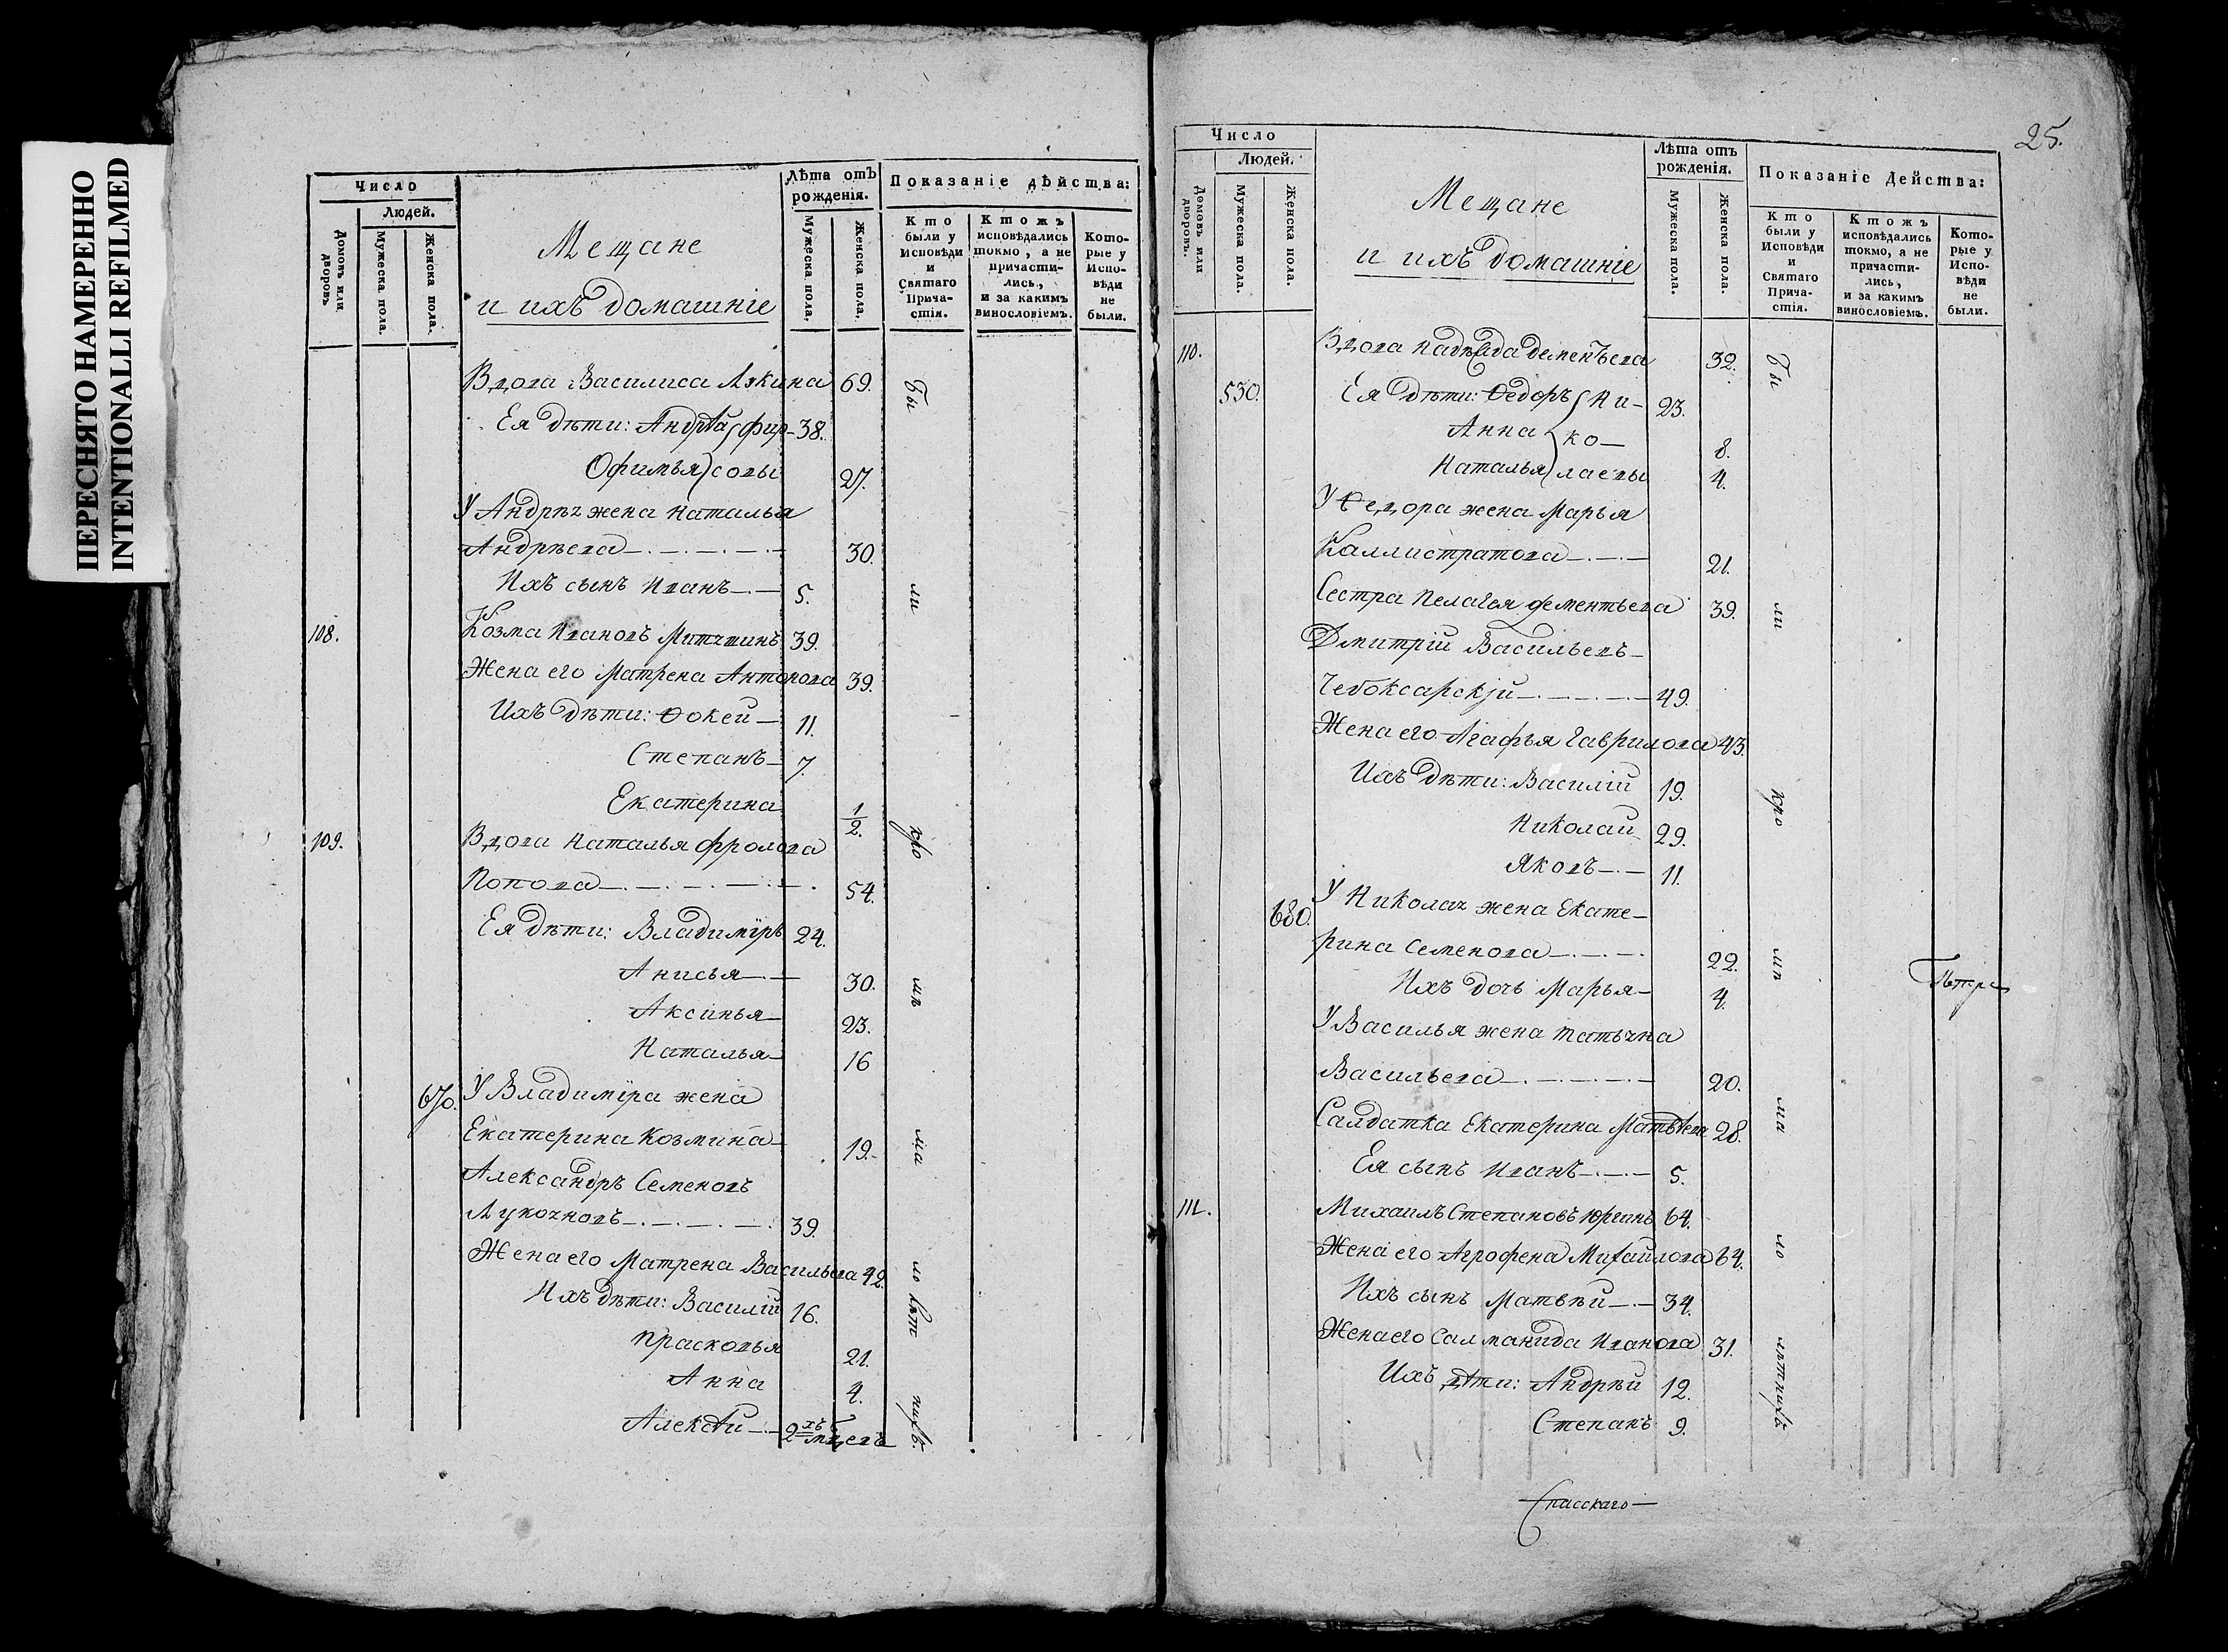 ПЕРЕСНЯТО НАМЕРЕННО
INTENTIONALLI REFILMED
Число
Людей.
Домовъ или дворовъ
Мужеска пола.
Женска пола.
Мещане
и ихъ домашніе
Лѣта отъ
рожденія.
Мужеска пола,
Женска пола,
Показаніе дѣйства:
Кто
были у
Исповѣди
и
Святаго
Прича-
стія.
Ктожъ
исповѣдались
токмо, а не
причасти-
лись,
и за какимъ
винословіемъ.
Кото-
рые у
Испо-
вѣди
не
были.
Вдова Василиса Лукина 69.
Ея дѣти: Андрѣй фир- 38.
Офимья совы 27.
У Андрѣя жена Наталья
Андрѣева 30.
Ихъ сынъ Иванъ 5.
108. Козма Ивановъ 39.
Жена его Матрена Антонова 39.
Ихъ дѣти: Ѳокей 11.
Степанъ 7.
Екатерина 1/2.
109. Вдова Наталья Фролова
Попова 54.
Ея дѣти: Владиміръ 24.
Анисья 30.
Аксинья 23.
Наталья 16
670. У Владиміра жена
Екатерина Козмина 19.
Александръ Семеновъ
39.
Жена его Матрена Васильева 42.
Ихъ дѣти: Василій 16.
Прасковья 21.
Анна 4.
Алексѣй 2хъ мцевъ
бы
ли
25.
Число
Людей.
Домовъ или дворовъ.
Мужеска пола.
Женска пола.
Мещане
и ихъ домашніе
Лѣта отъ
рожденія.
Мужеска пола.
Женска пола.
Показаніе Действа:
Кто
были у
Исповѣди
и
Святаго
Прича-
стія.
Ктожъ
исповѣдались
токмо, а не
причасти-
лись,
и за какимъ
винословіемъ.
Кото-
рые у
Испо-
вѣди
не
были.
110. Вдова Надежда Дементьева 32.
530. Ея дѣти: Ѳедоръ Ни- 23.
Анна ко- 8.
Наталья лаевы 4.
У Ѳедора жена Марья
Каллистратова 21.
Сестра Пелагея Дементьева 39.
Дмитрій Васильевъ
Чебоксарскій 49.
Жена его Агафья Гаврилова 43.
Ихъ дѣти: Василій 19.
Николай 29.
Яковъ 11.
680. У Николая жена Екате-
рина Семенова 22.
Ихъ дочь Марья 4.
У Василья жена Татьяна
Васильева 20.
Салдатка Екатерина Матвѣева 28.
Ея сынъ Иванъ 5.
111. Михаилъ Степановъ Юргинъ 64.
Жена его Агрофена Михайлова 64.
Ихъ сынъ Матвѣй 34.
Жена его Салманида Иванова 31.
Ихъ дѣти: Андрѣй 12.
Степанъ 9.
бы
ли
Спасскаго